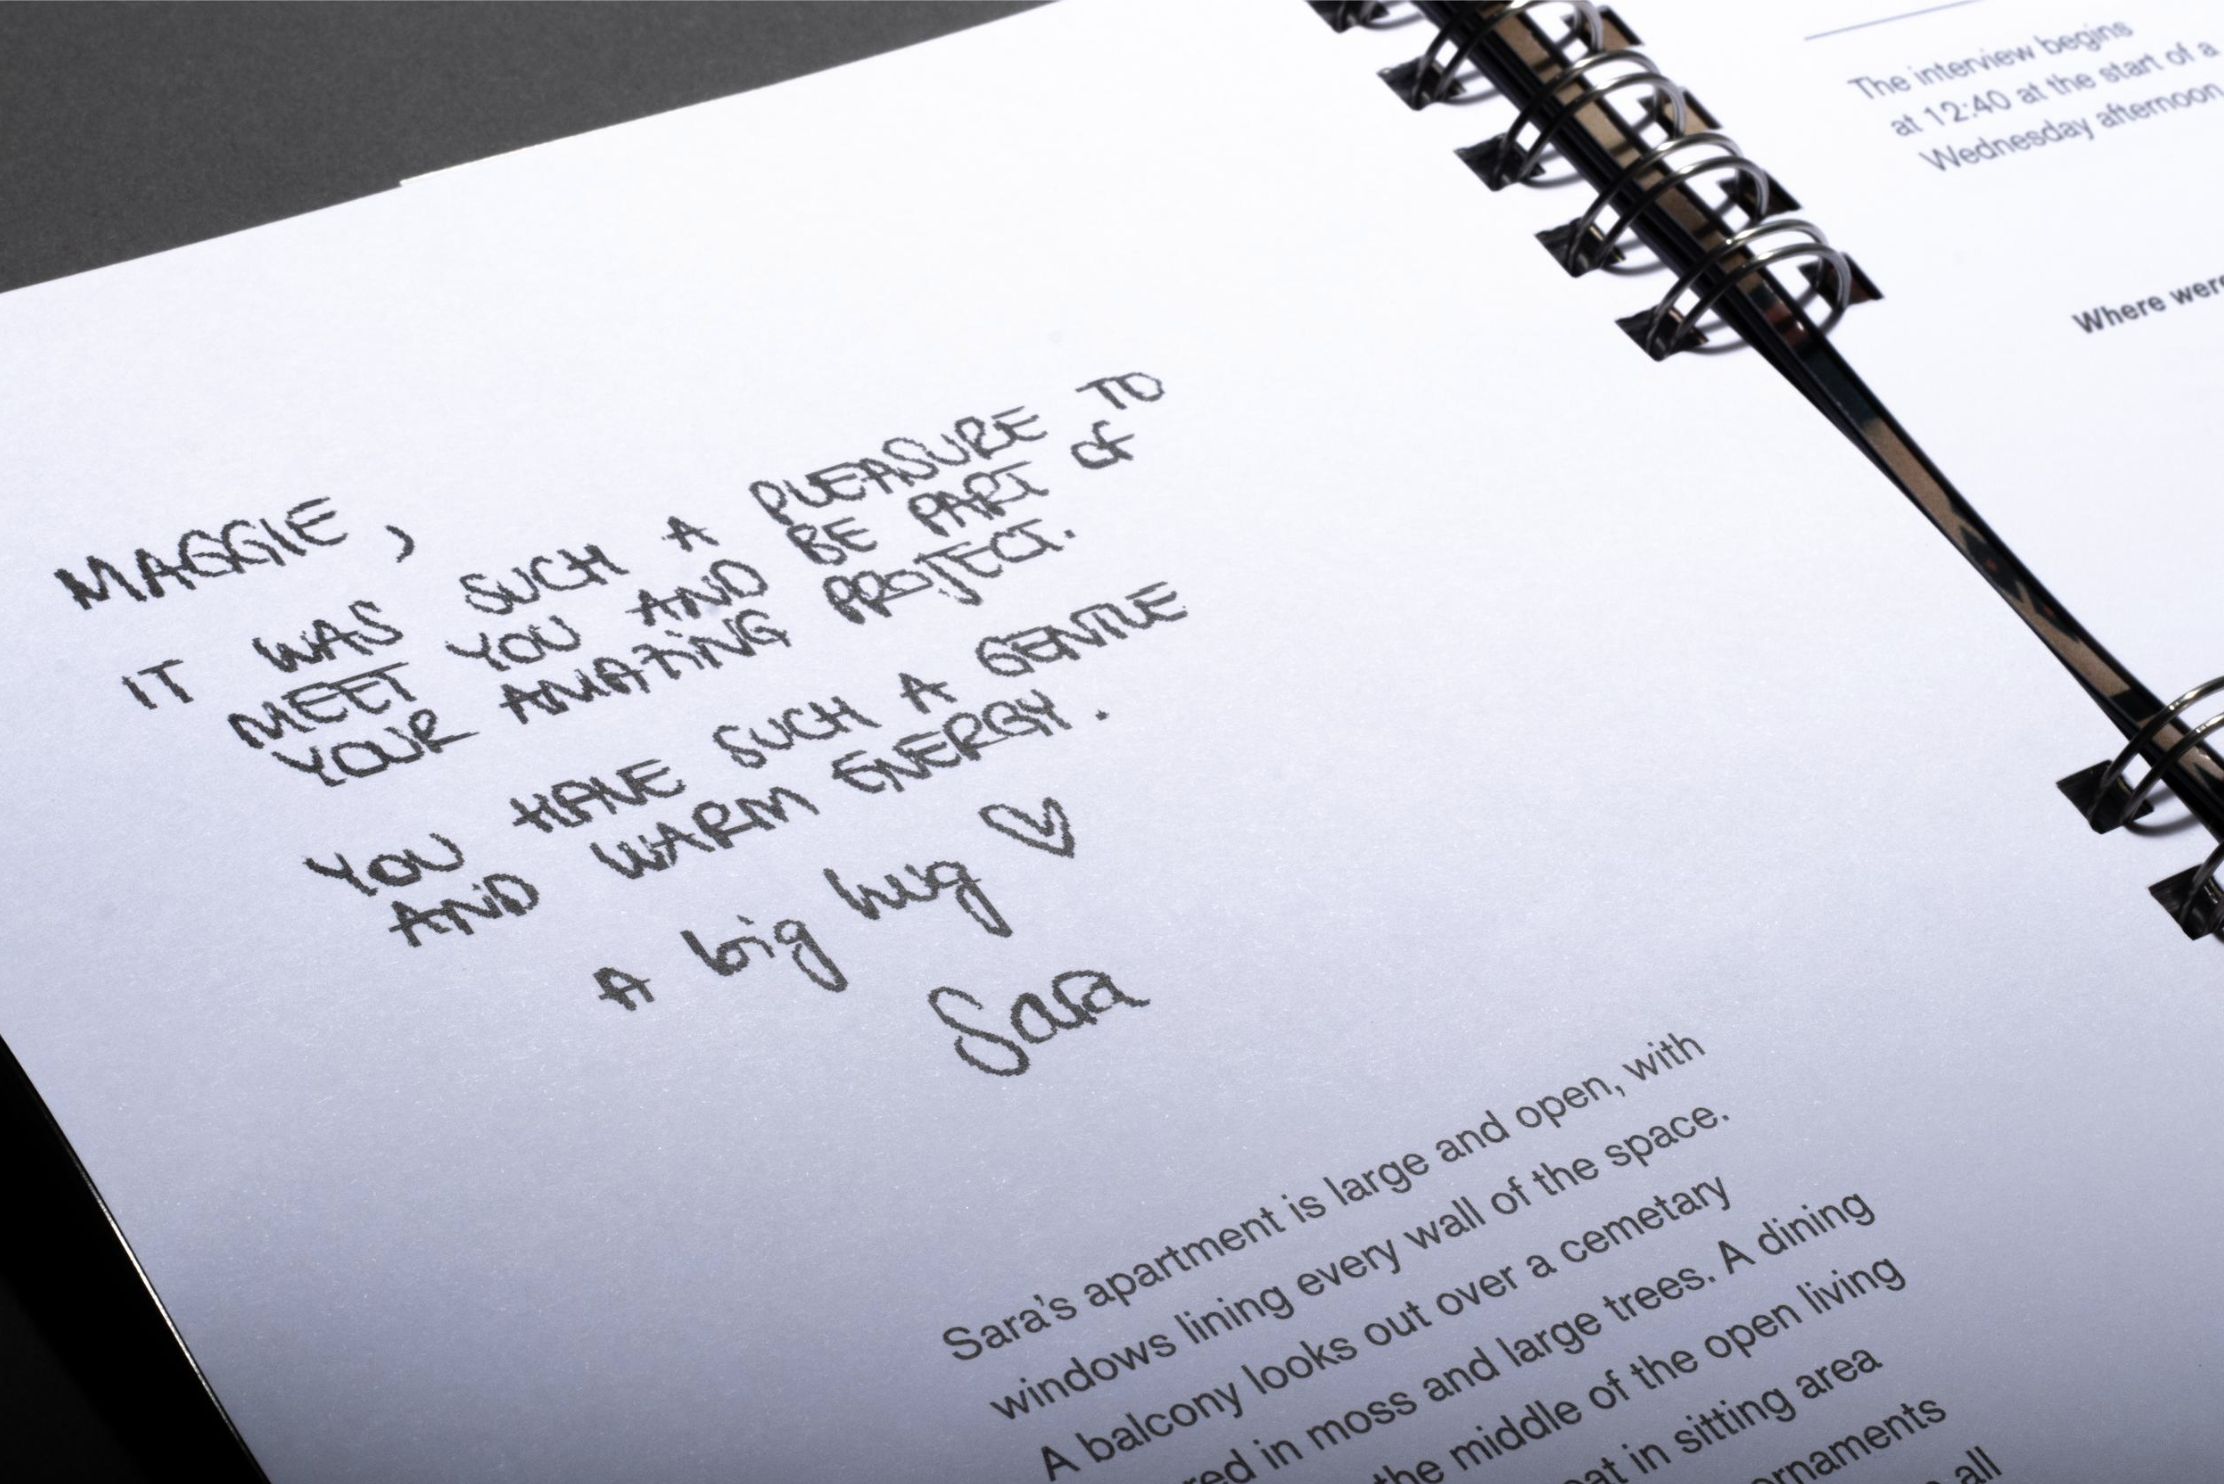 MAGGIE,
IT WAS SUCH A PLEASURE TO
MEET YOU AND BE PART OF
YOUR AMAZING PROJECT.
YOU HAVE SUCH A GENTLE
AND WARM ENERGY.
A big hug ♡
Sara
Sara's apartment is large and open, with
windows lining every wall of the space.
A balcony looks out over a cemetary
in moss and large trees. A dining
the middle of the open living
in sitting area
ornaments
all
The interview begins
at 12:40 at the start of a
Wednesday afternoon
Where were